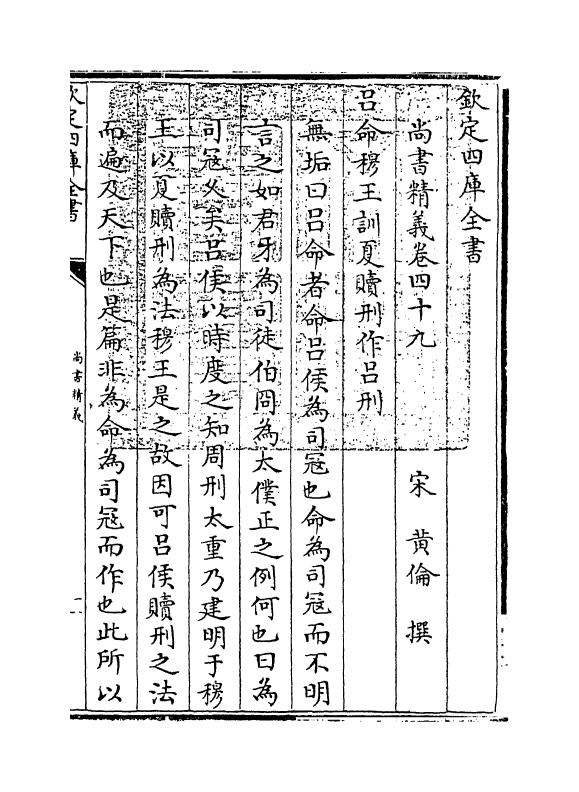 欽定四庫全書
尚書精義卷四十九
宋 黃倫 撰
呂命穆王訓夏贖刑作呂刑
無垢曰呂命者命呂侯為司冦也命為司冦而不明
言之如君牙為司徒伯冏為太僕正之例何也曰為
司冦乆矣呂侯以時度之知周刑太重乃建明于穆
王以夏贖刑為法穆王是之故因可呂侯贖刑之法
而遍及天下也是篇非為命為司冦而作也此所以
欽定四庫全書
尚書精義